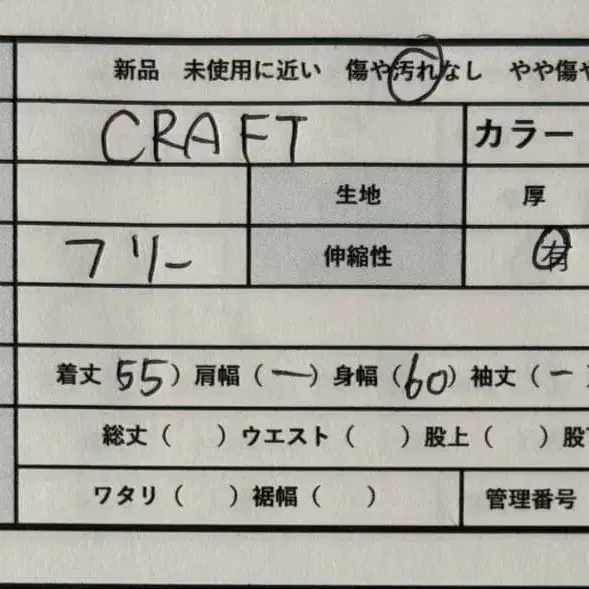 新品 未使用に近い 傷や汚れなし やや傷や
CRAFT カラー
生地 厚
フリー 伸縮性 有
着丈 55）肩幅（ー）身幅（60）袖丈（ー
総丈（ ）ウエスト（ ）股上（ ）股下
ワタリ（ ）裾幅（ ） 管理番号